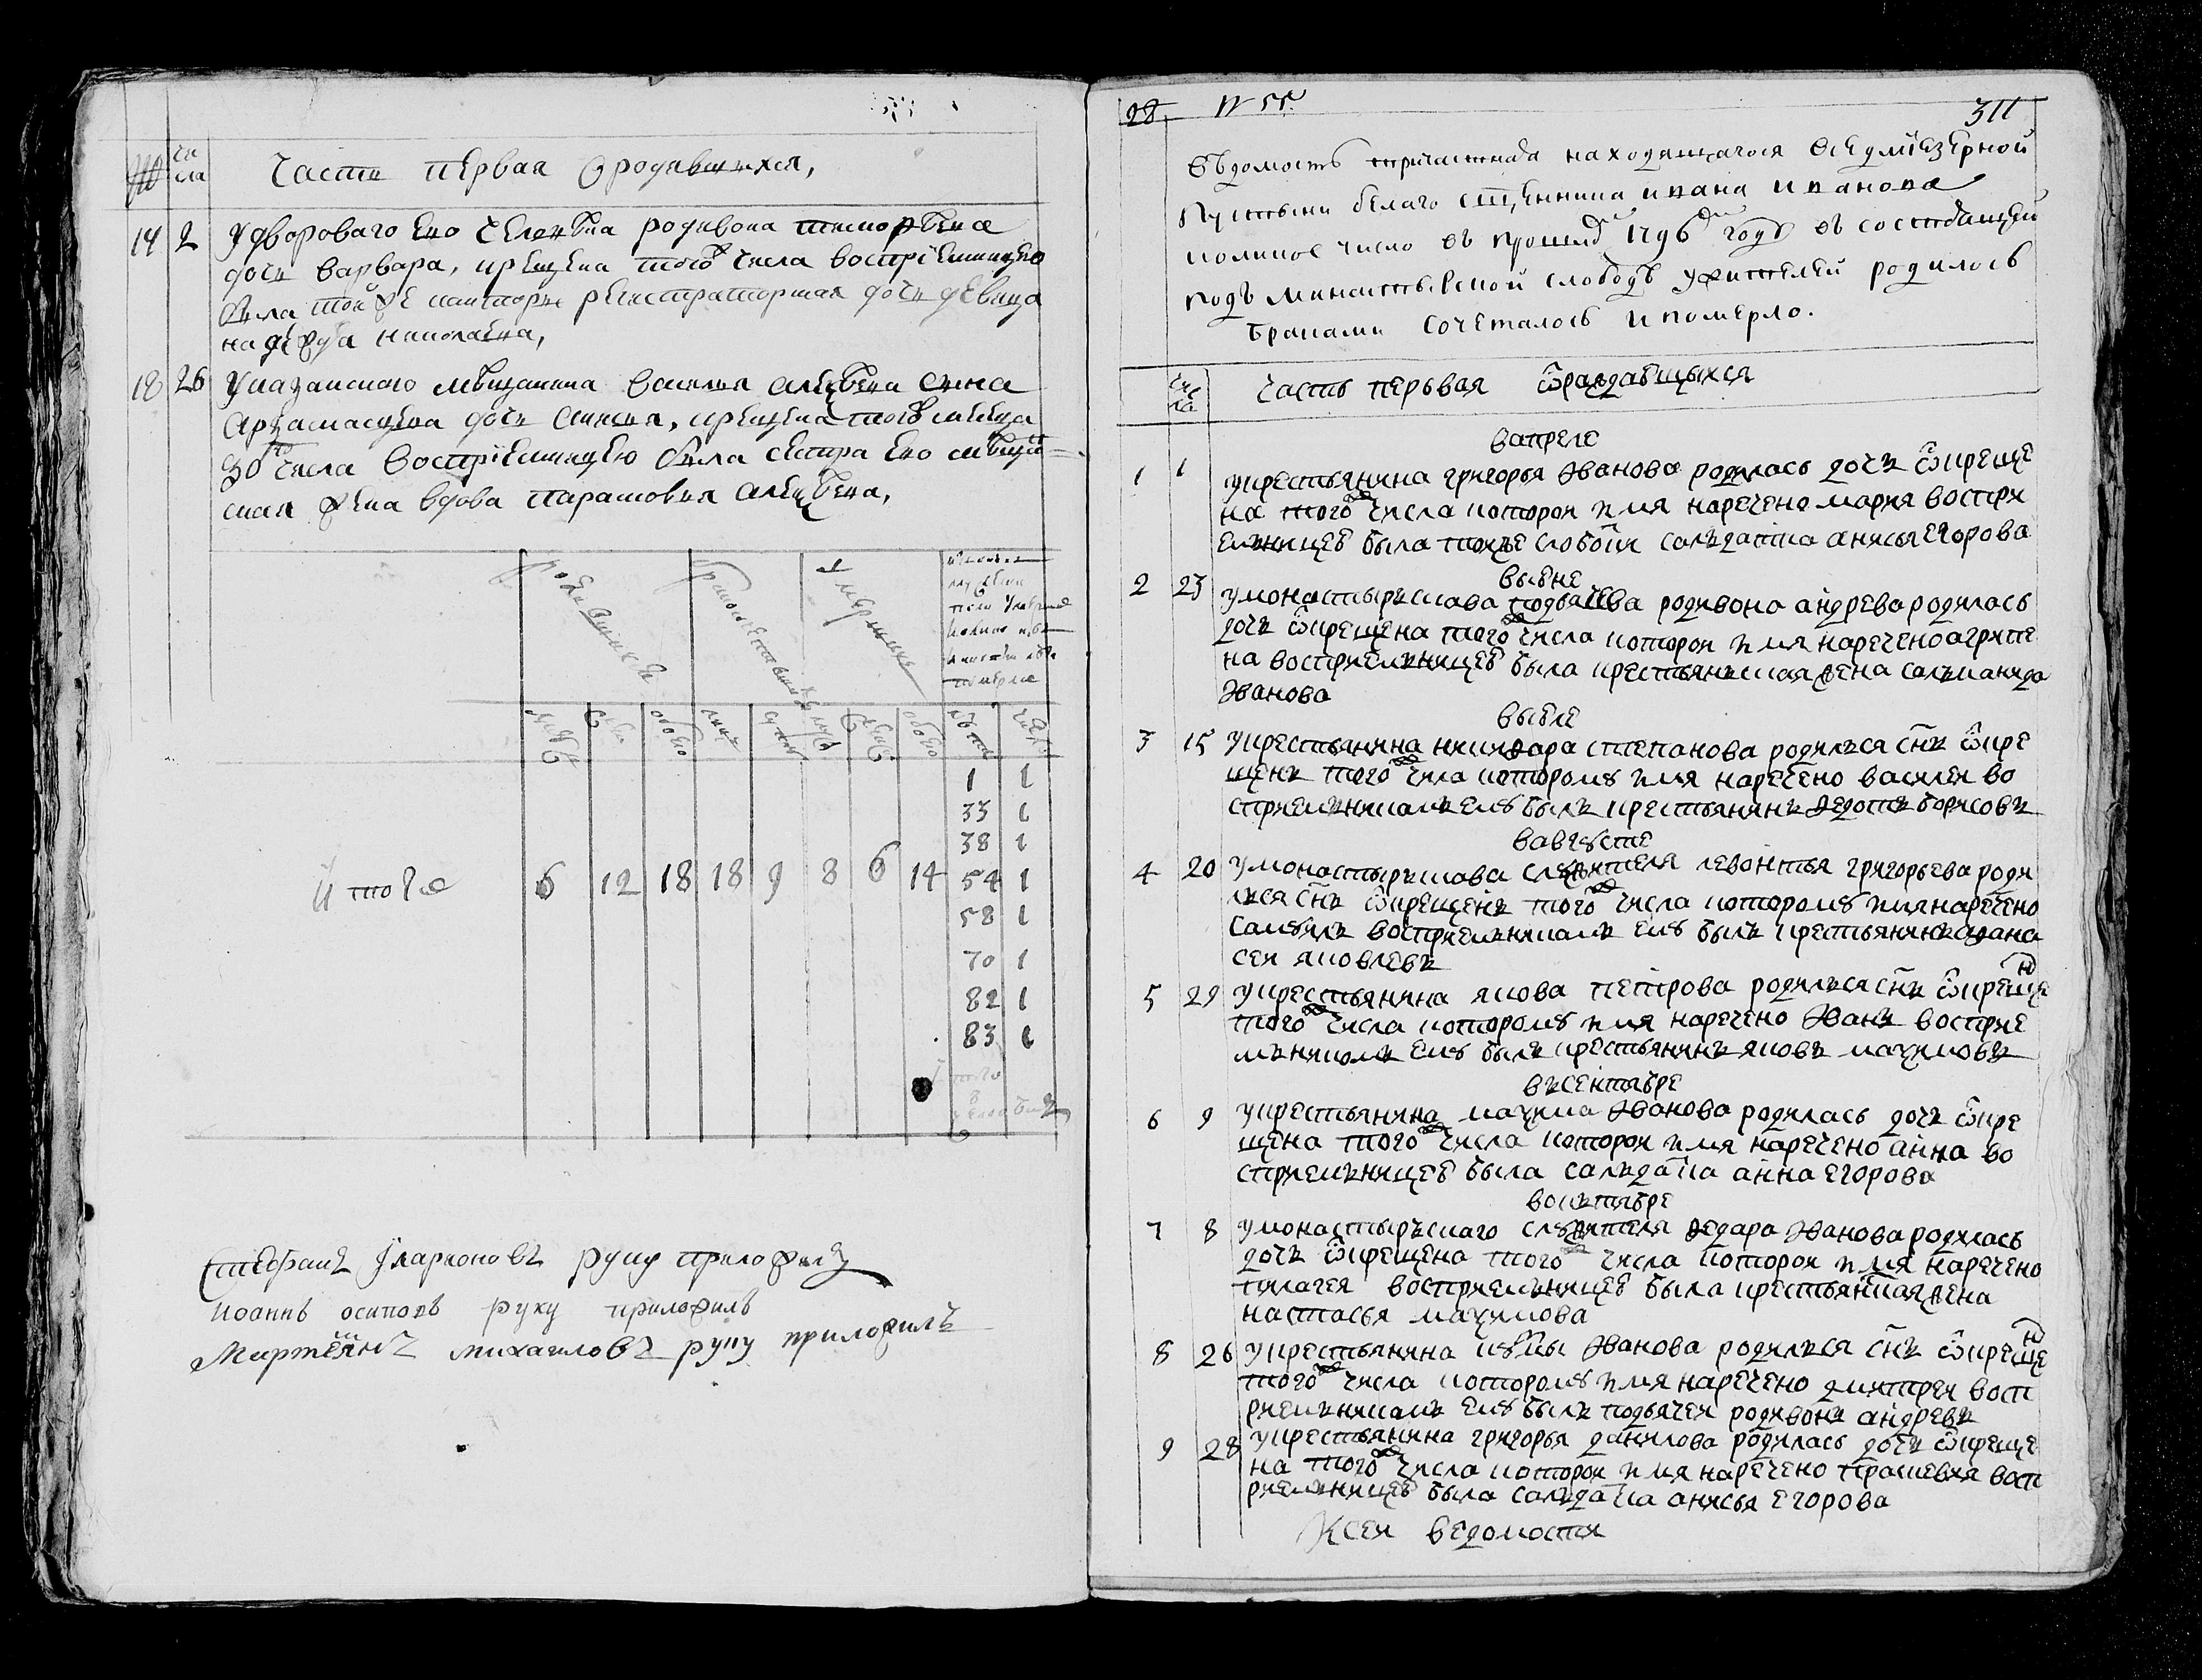 числа
Часть первая о родившихся,
14 2 У дворового ево человека родивона тимофеева
дочь варвара, крещена того числа восприемницею
была той же канторы регистраторшая дочь девица
надежда николаевна,
18 26 У казанского мещанина василья алексеева сына
Арзамасцева дочь аннся, крещена того месяца
30го числа восприемницею была сестра ево мещан=
ская жена вдова парасковья алексеева,
родившихся
умерших
1 1
33 1
38 1
И того 6 12 18 18 9 8 6 14 54 1
58 1
70 1
82 1
83 1
Стефанъ Иларионовъ руку приложилъ
Иоаннъ осиповъ руку приложилъ
Мартинъ михаиловъ руку приложилъ
28 № 55. 311
Ведомость находящагося Седмиезерной
Пустыни белаго священника ивана иванова
коликое число въ прошлом 1796м году въ состоящей
подъ монастырской слободе жителей родилось
браками сочеталось и померло.
числа Часть первая ѿ раждавшыхся
в апреле
1 1 у крестьянина григорья Иванова родилась дочъ ѿ креще
на того ж числа которои имя наречено мария воспри
емницеѵ была тоиже слободы салдатка анисья Егорова
в июне
2 23 у монастырскова подьячева родивона андрева родилась
дочъ ѿ крещена того ж числа которои имя наречено агрипе
на восприемницеѵ была крестьянская жена саламанида
Иванова
в июле
3 15 у крестьянина никифара степанова родился снъ ѿ кре
щенъ того ж числа которому имя наречено василеи во
сприемникамъ ему былъ крестьянинъ федотъ борисовъ
в августе
4 20 у монастырскова служителя левонтья григорьева роди
лся снъ ѿ крещенъ того ж числа которому имя наречено
самуилъ восприемникамъ ему былъ крестьянинъ афана
сеи яковлевъ
5 29 у крестьянина якова петрова родился снъ ѿ крещен
того ж числа которому имя наречено Иванъ восприе
мникомъ ему былъ крестьянинъ яковъ макимовъ
въ сентябре
6 9 у крестьянина макима Иванова родилась дочъ ѿ кре
щена того ж числа которои имя наречено анна во
сприемницеѵ была салдатка анна Егорова
в октябре
7 8 у монастырскаго служителя федара Иванова родилась
дочъ ѿ крещена того ж числа которои имя наречено
пилагея восприемницеѵ была крестьянская жена
настасья макимова
8 26 у крестьянина кузмы Иванова родился снъ ѿ крещен
того ж числа которому имя наречено дмитреи восп
риемникамъ ему былъ подьячеи родивонъ андревъ
9 28 у крестьянина григорья данилова родилась дочъ ѿ креще
на того ж числа которои имя наречено прасковия восп
риемницеѵ была салдатка анисья Егорова
К сеи ведомости